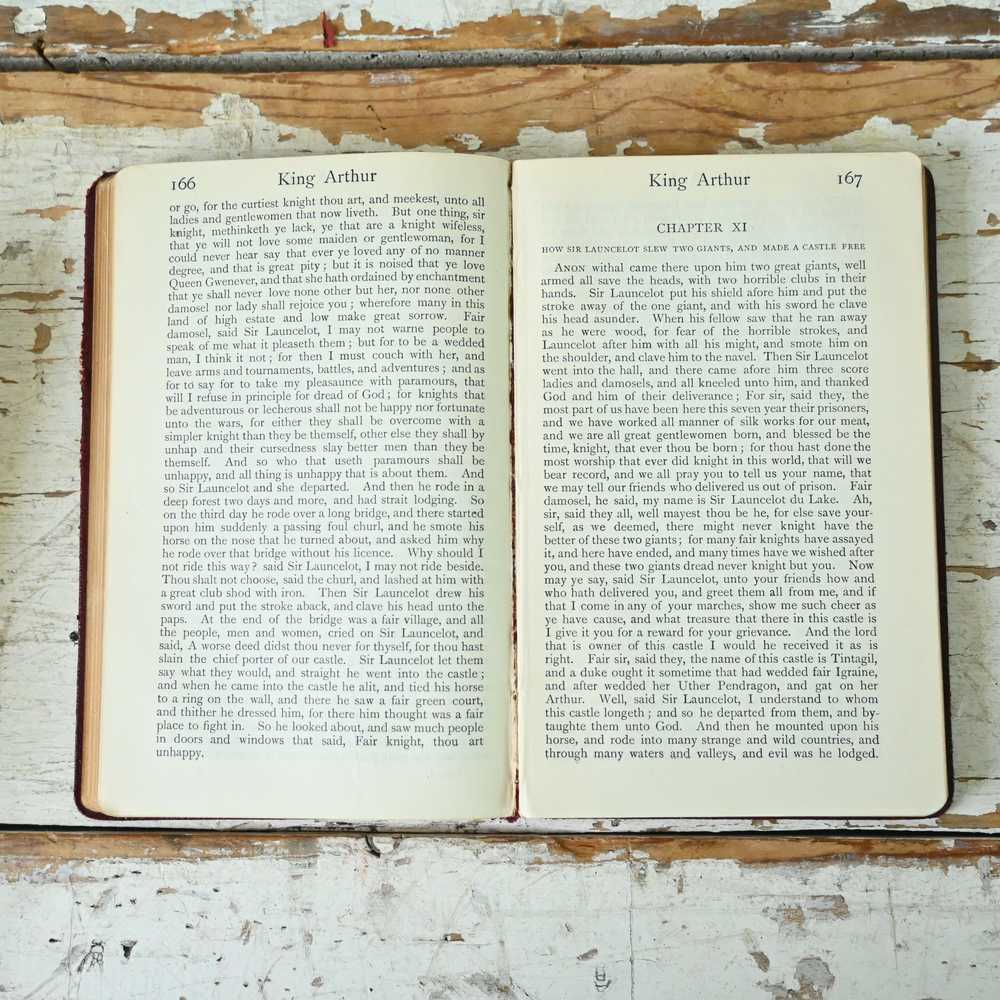 166
King Arthur
or go, for the curtiest knight thou art, and meekest, unto all
ladies and gentlewomen that now liveth. But one thing, sir
knight, methinketh ye lack, ye that are a knight wifeless,
that ye will not love some maiden or gentlewoman, for I
could never hear say that ever ye loved any of no manner
degree, and that is great pity; but it is noised that ye love
Queen Gwenever, and that she hath ordained by enchantment
that ye shall never love none other but her, nor none other
damosel nor lady shall rejoice you; wherefore many in this
land of high estate and low make great sorrow. Fair
damosel, said Sir Launcelot, I may not warne people to
speak of me what it pleaseth them; but for to be a wedded
man, I think it not; for then I must couch with her, and
leave arms and tournaments, battles, and adventures; and as
for to say for to take my pleasaunce with paramours, that
will I refuse in principle for dread of God; for knights that
be adventurous or lecherous shall not be happy nor fortunate
unto the wars, for either they shall be overcome with a
simpler knight than they be themself, other else they shall by
unhap and their cursedness slay better men than they be
themself. And so who that useth paramours shall be
unhappy, and all thing is unhappy that is about them. And
so Sir Launcelot and she departed. And then he rode in a
deep forest two days and more, and had strait lodging. So
on the third day he rode over a long bridge, and there started
upon him suddenly a passing foul churl, and he smote his
horse on the nose that he turned about, and asked him why
he rode over that bridge without his licence. Why should I
not ride this way? said Sir Launcelot, I may not ride beside.
Thou shalt not choose, said the churl, and lashed at him with
a great club shod with iron. Then Sir Launcelot drew his
sword and put the stroke aback, and clave his head unto the
paps. At the end of the bridge was a fair village, and all
the people, men and women, cried on Sir Launcelot, and
said, A worse deed didst thou never for thyself, for thou hast
slain the chief porter of our castle. Sir Launcelot let them
say what they would, and straight he went into the castle;
and when he came into the castle he alit, and tied his horse
to a ring on the wall, and there he saw a fair green court,
and thither he dressed him, for there him thought was a fair
place to fight in. So he looked about, and saw much people
in doors and windows that said, Fair knight, thou art
unhappy.
King Arthur
167
CHAPTER XI
HOW SIR LAUNCELOT SLEW TWO GIANTS, AND MADE A CASTLE FREE
ANON withal came there upon him two great giants, well
armed all save the heads, with two horrible clubs in their
hands. Sir Launcelot put his shield afore him and put the
stroke away of the one giant, and with his sword he clave
his head asunder. When his fellow saw that he ran away
as he were wood, for fear of the horrible strokes, and
Launcelot after him with all his might, and smote him on
the shoulder, and clave him to the navel. Then Sir Launcelot
went into the hall, and there came afore him three score
ladies and damosels, and all kneeled unto him, and thanked
God and him of their deliverance; For sir, said they, the
most part of us have been here this seven year their prisoners,
and we have worked all manner of silk works for our meat,
and we are all great gentlewomen born, and blessed be the
time, knight, that ever thou be born; for thou hast done the
most worship that ever did knight in this world, that will we
bear record, and we all pray you to tell us your name, that
we may tell our friends who delivered us out of prison. Fair
damosel, he said, my name is Sir Launcelot du Lake. Ah,
sir, said they all, well mayest thou be he, for else save your-
self, as we deemed, there might never knight have the
better of these two giants; for many fair knights have assayed
it, and here have ended, and many times have we wished after
you, and these two giants dread never knight but you. Now
may ye say, said Sir Launcelot, unto your friends how and
who hath delivered you, and greet them all from me, and if
that I come in any of your marches, show me such cheer as
ye have cause, and what treasure that there in this castle is
I give it you for a reward for your grievance. And the lord
that is owner of this castle I would he received it as is
right. Fair sir, said they, the name of this castle is Tintagil,
and a duke ought it sometime that had wedded fair Igraine,
and after wedded her Uther Pendragon, and gat on her
Arthur. Well, said Sir Launcelot, I understand to whom
this castle longeth; and so he departed from them, and by-
taught them unto God. And then he mounted upon his
horse, and rode into many strange and wild countries, and
through many waters and valleys, and evil was he lodged.